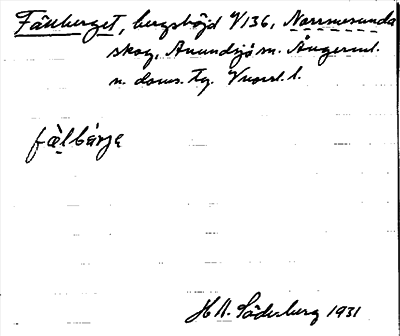 Fällberget, bergshöjd V136, Norrmesunda
skog, Anundsjö sn. Ångerml.
n. doms. Tg. Vnorrl. l.
fälbärje
H A. Söderberg 1931